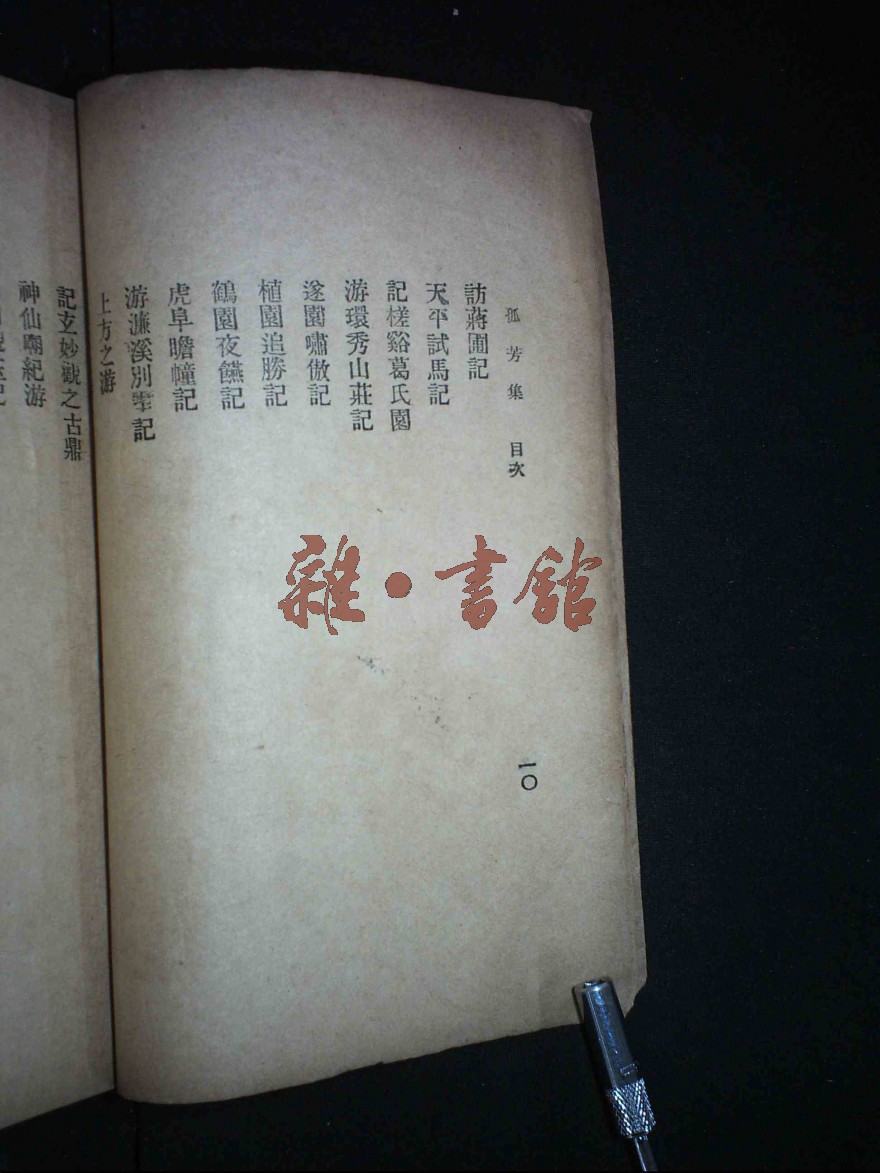 孤芳集 目次
訪蔣圃記
天平試馬記
記槎谿葛氏園
游環秀山莊記
遂園嘯傲記
植園追勝記
鶴園夜讌記
虎阜瞻幢記
游濂溪別墅記
上方之游
一〇
記玄妙觀之古鼎
神仙廟紀游
雜·書館